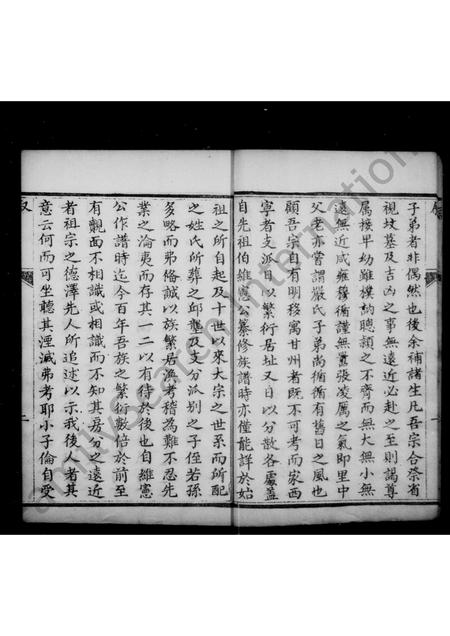 子弟者非偶然也後余補諸生凡吾宗合祭省
視墳墓及吉凶之事無遠近必赴之至則謁尊
属接卑幼雖樸納聰頴之不齊而無大無小無
遠無近咸雍穆循謹無囂張凌厲之氣即里中
父老亦嘗謂嚴氏子弟尚循循有舊日之風也
顧吾宗自有明移寓甘州者既不可考而家西
寧者支派日以繁行居址又日以分散各處蓋
自先祖伯維憲公纂修族譜時亦僅能詳於始
祖之所自起及十世以來大宗之世系而所配
之姓氏所葬之邱壟及支分派別之子侄若孫
多略而弗備誠以族繁居渙考稽為難不忍先
業之淪夷而存其一二以有待於後也自維憲
公作譜時迄今百年吾族之繁衍數倍於前至
有覿面不相識或相識而不知其房分之遠近
者祖宗之德澤先人所追述以示我後人者其
意云何而可坐聽其湮滅弗考耶小子倫自受